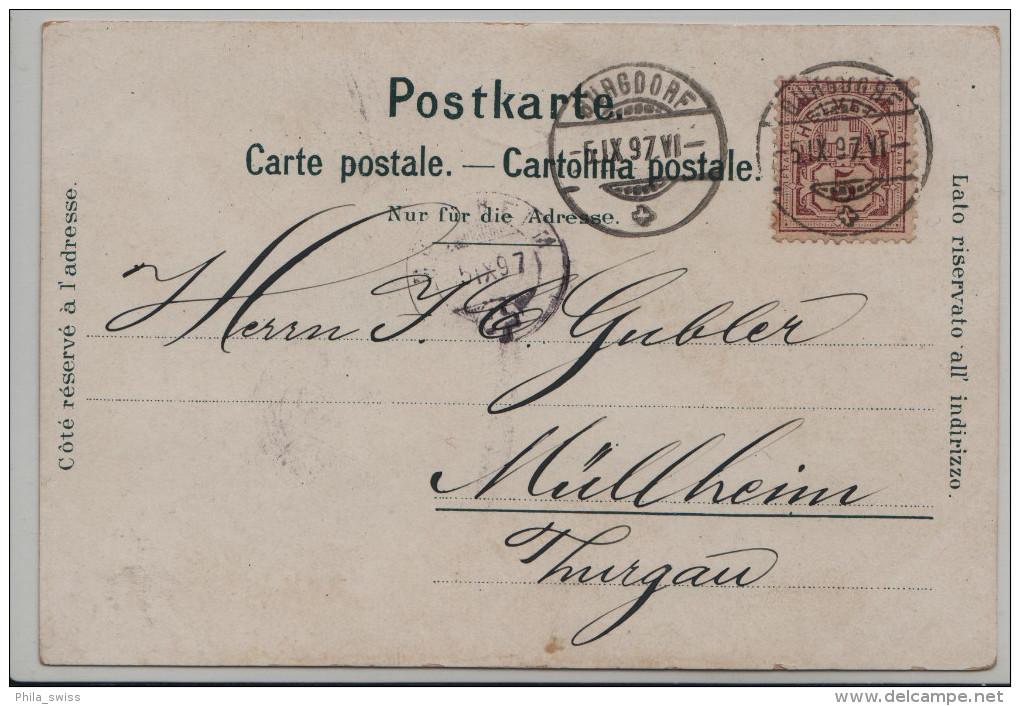 Postkarte.
Carte postale. — Cartolina postale.
Nur für die Adresse.
BURGDORF
-5.IX.97.VI-
BURGDORF
-5.IX.97.VI-
HELVETIA
5
5.IX.97
Côté réservé à l'adresse.
Lato riservato all' indirizzo.
Herrn J. C. Gubler
Müllheim
Thurgau
Phila_swiss
www.delcampe.net